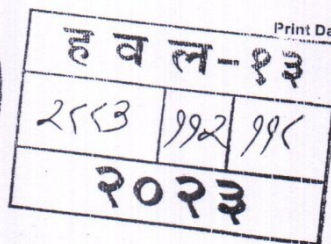 Print Da
ह व ल-१३
२८८३ ११२ ११८
२०२३